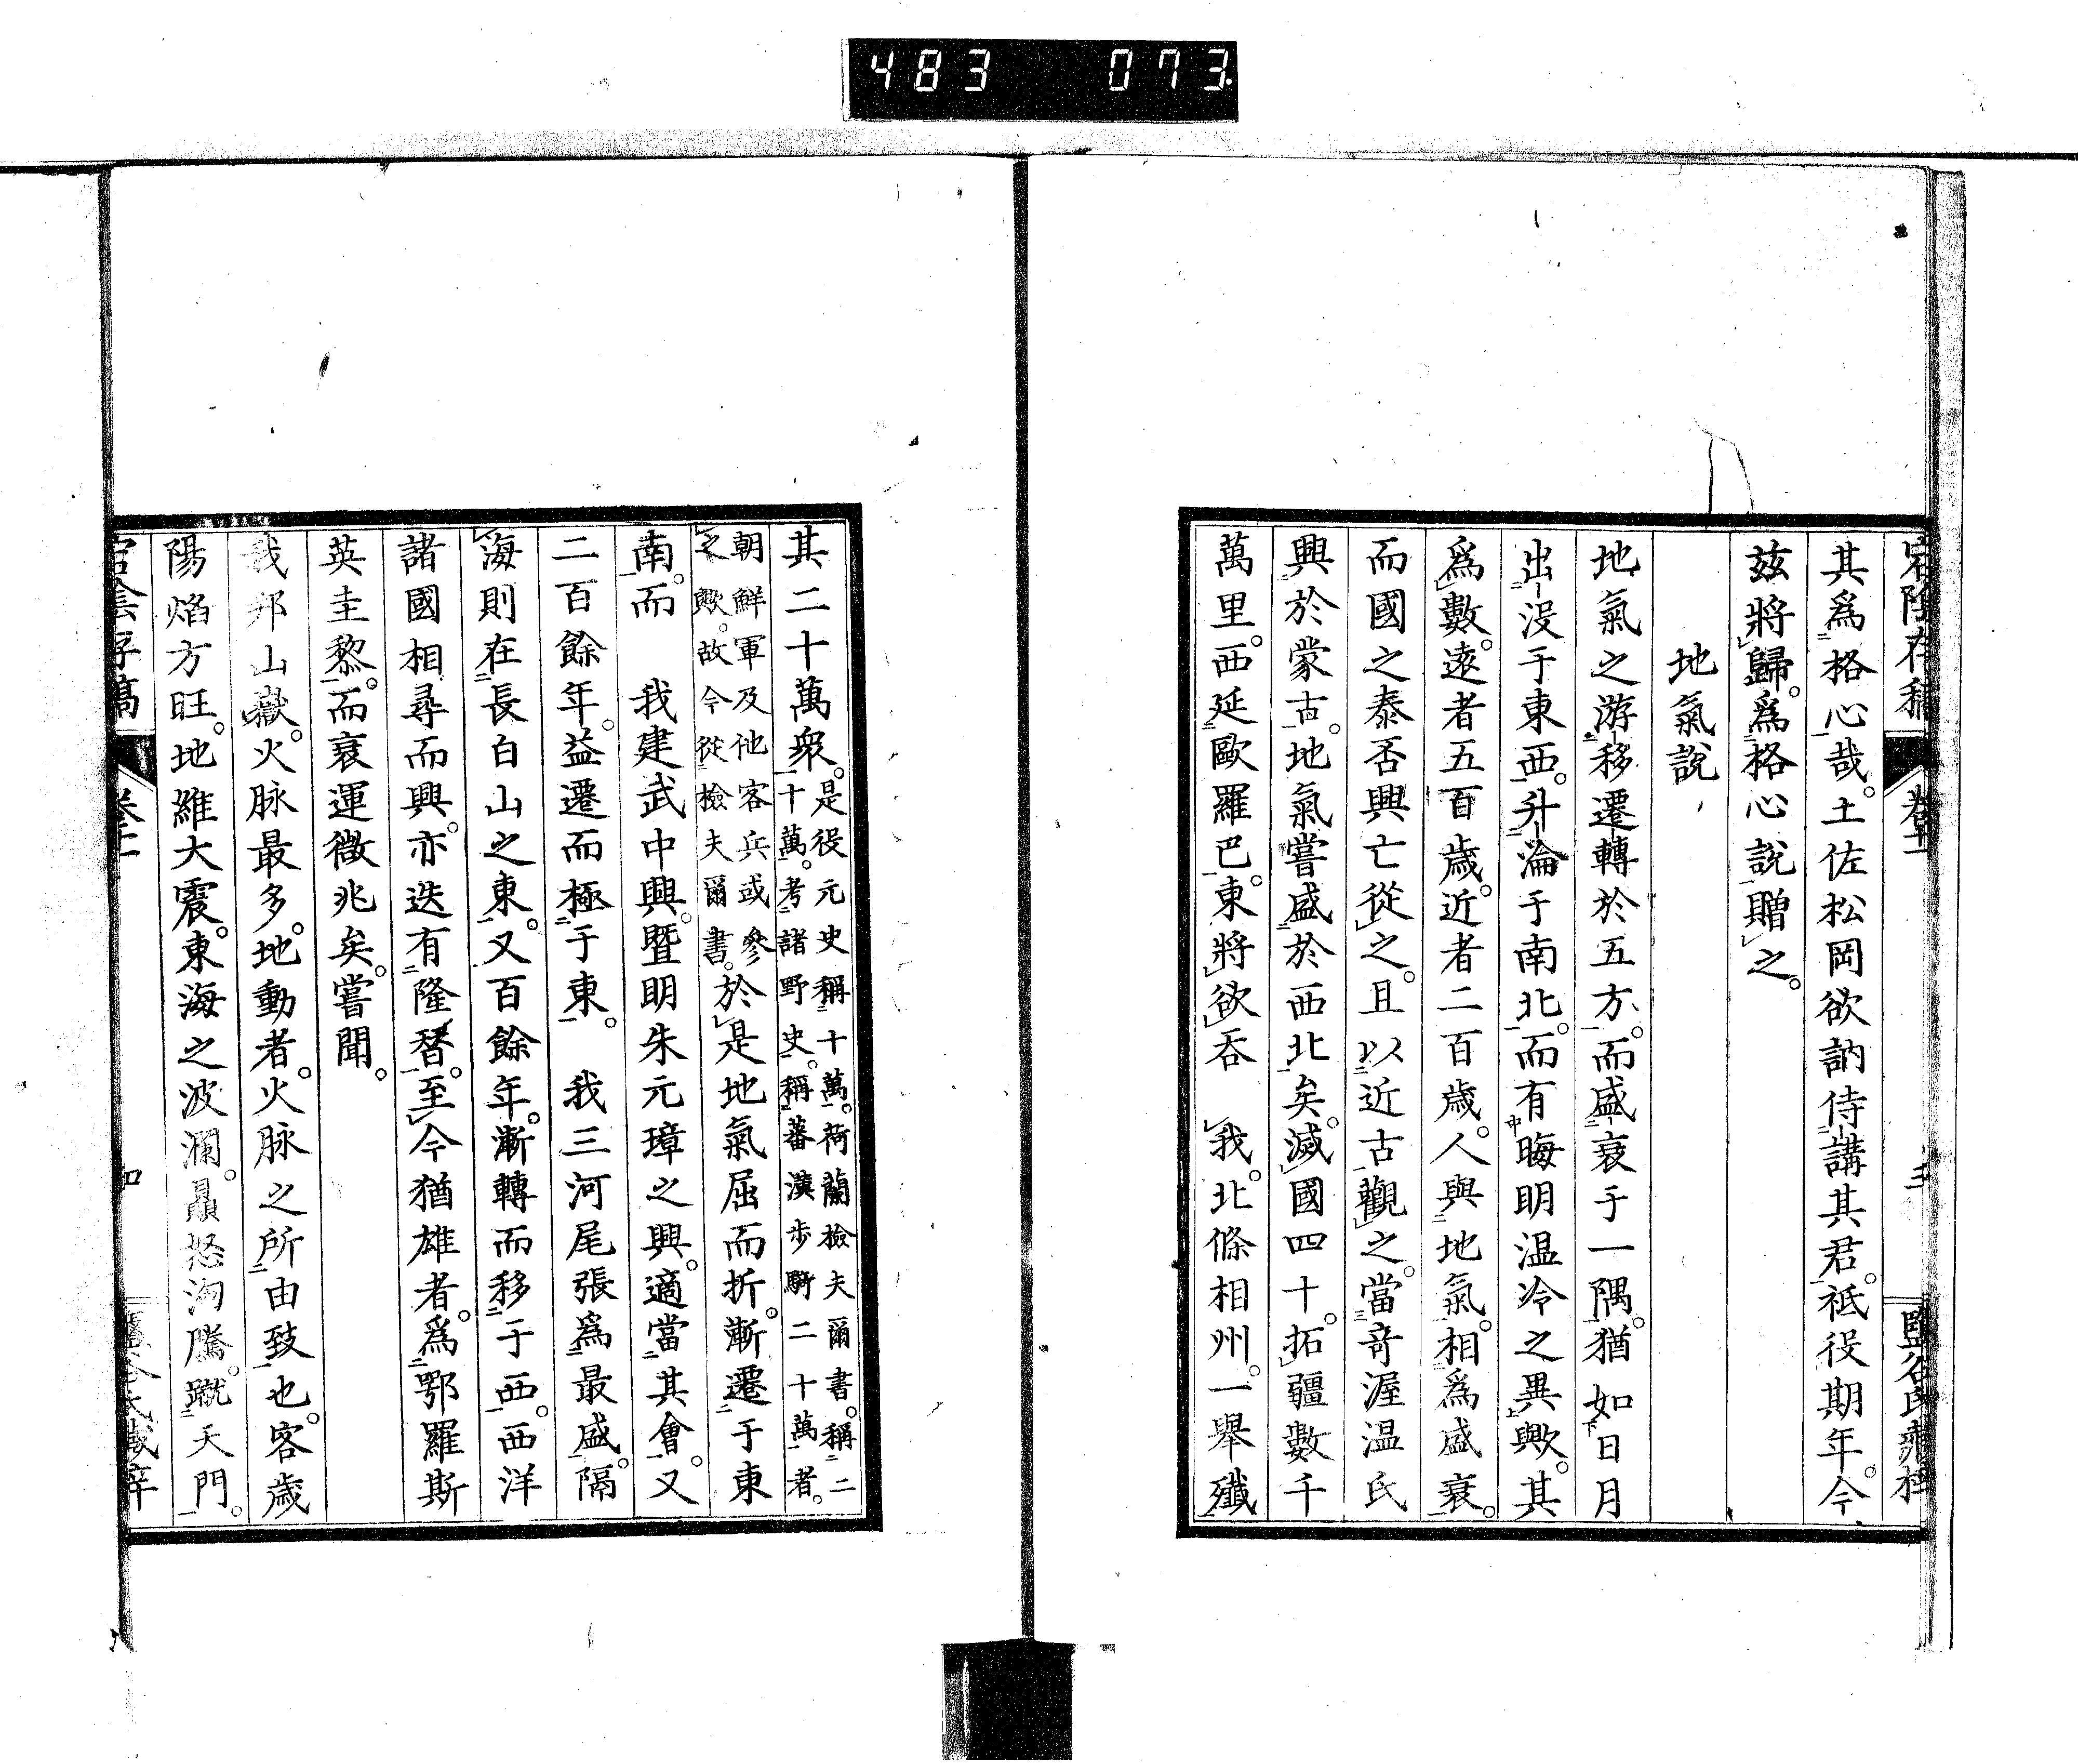 483 073
其爲格心哉。土佐松岡欲訥侍講其君。祗役期年。今
茲將歸。爲格心說贈之。
地氣說
地氣之游移遷轉於五方。而盛衰于一隅。猶如日月
出沒于東西。升淪于南北。而有晦明温冷之異歟。其
爲數。遠者五百歲。近者二百歲。人與地氣。相爲盛衰。
而國之泰否興亡從之。且以近古觀之。當奇渥温氏
興於蒙古。地氣嘗盛於西北矣。滅國四十。拓疆數千
萬里。西延歐羅巴。東將欲吞 我。北條相州。一舉殲
其二十萬衆。是役元史稱十萬。荷蘭撿夫爾書。稱二
十萬。考諸野史。稱蕃漢步騎二十萬者。
朝鮮軍及他客兵或參
之歟。故今從撿夫爾書。於是地氣屈而折。漸遷于東
南。而 我建武中興。暨明朱元璋之興。適當其會。又
二百餘年。益遷而極于東。 我三河尾張爲最盛。隔
海則在長白山之東。又百餘年。漸轉而移于西。西洋
諸國相尋而興。亦迭有隆替。至今猶雄者。爲鄂羅斯
英圭黎。而衰運徵兆矣。嘗聞。
我邦山嶽。火脉最多。地動者。火脉之所由致也。客歲
陽焰方旺。地維大震。東海之波瀾。贔怒洶騰。蹴天門。